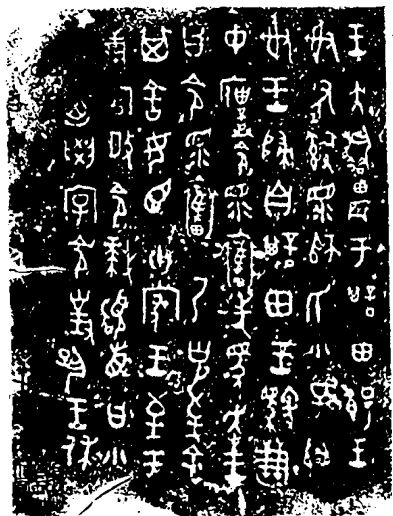 王大耤農于諆田餳王
射有𤔲眔師氏小子𨛭射
王歸自諆田王馭溓
中僕令眔奮先馬走王
曰令眔奮乃克至余
其舍女臣卅家王至于
溓宮令拜𩒨首曰小
子迺學令對揚王休